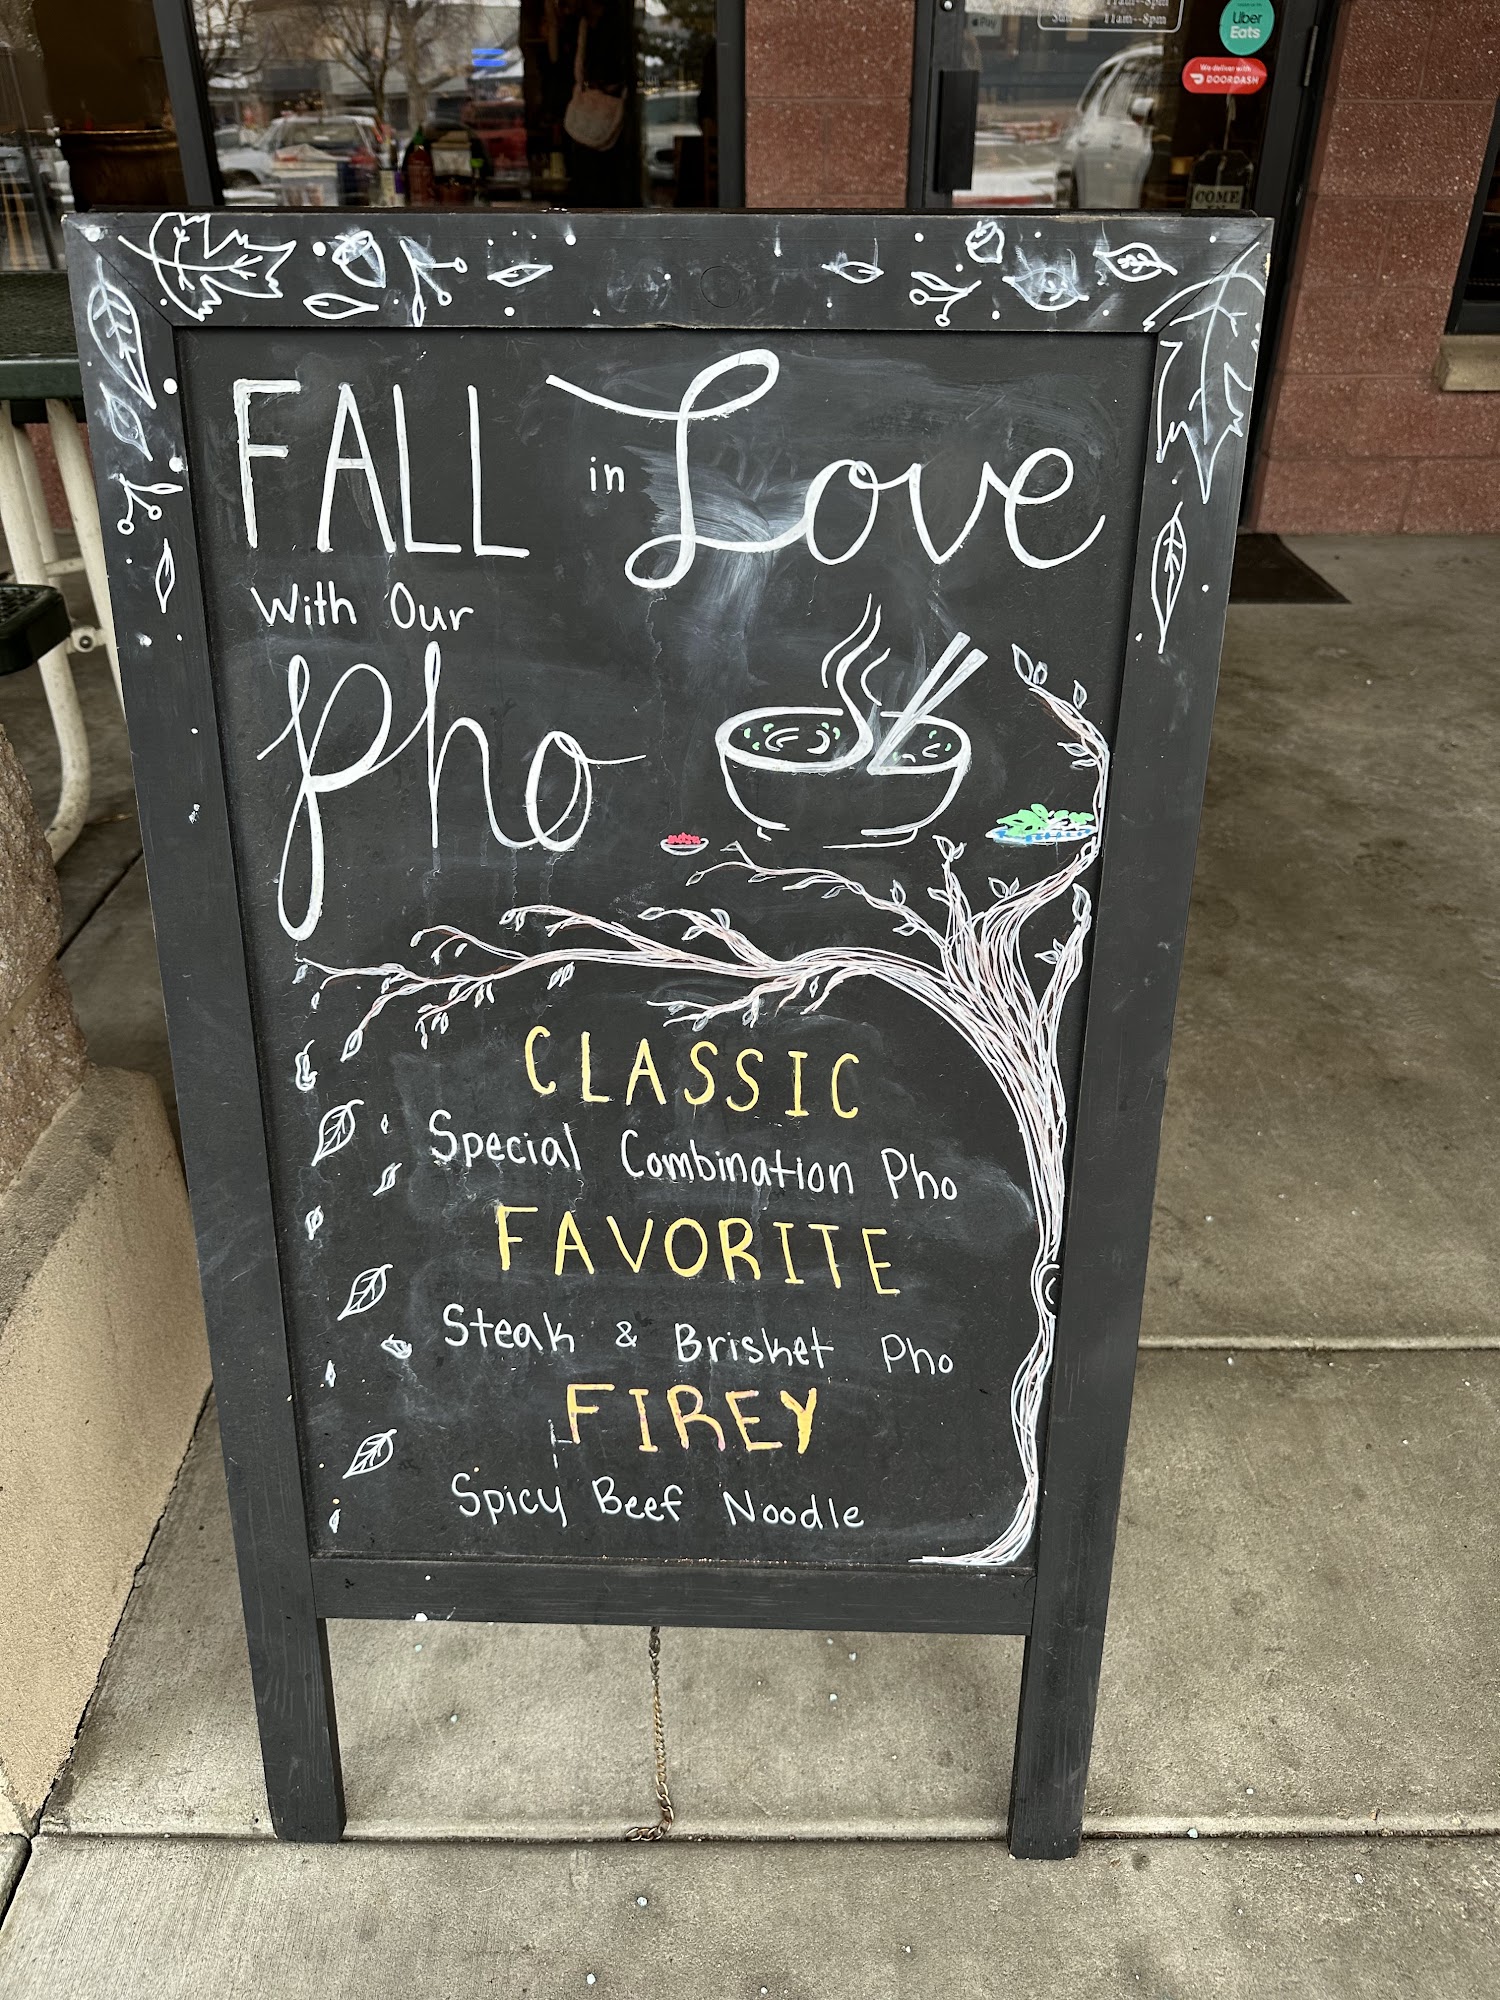 11am--8pm
Sun 11am--8pm
Pay
Uber
Eats
We deliver with
DOORDASH
COME
FALL in Love
With Our
Pho
CLASSIC
Special Combination Pho
FAVORITE
Steak & Brisket Pho
FIREY
Spicy Beef Noodle